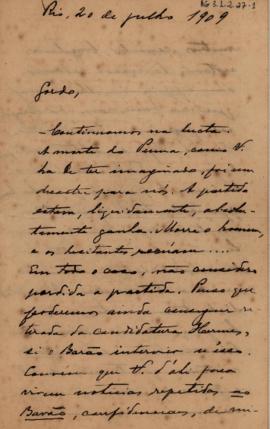 AG 3.1.2.27-1
Rio, 20 de julho 1909
Gordo,
— Continuamos na lucta.
A morte do Penna, como V.
ha de ter imaginado, foi um
desastre para nós. A partida
estava, liquidamente, absolu-
tamente ganha. Morre o homem,
e os hesitantes recúam....
Em todo o caso, não considero
perdida a partida. Penso que
poderemos ainda conseguir re-
tirada da candidatura Hermes,
si o Barão intervier n'isso.
Convem que V. d'ahi possa
virem noticias repetidas ao
Barão, confidenciaes, de